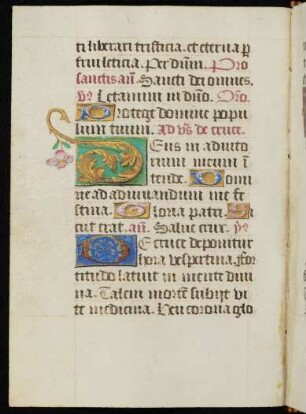 ti liberari tristicia. et eterna p
frui leticia. Per dnm. Pro
sanctis añ. Sancti dei omnes.
vs Letamini in dno. Oro.
Protege domine popu
lum tuum. Ad vs de cruce.
Deus in adiuto
rium meum i
tende. Domi
ne ad adiuvandum me fe
stina. Gloria patri. Si
cut erat. añ. Salve crux. ps
De cruce deponitur
hora vespertina. for
titudo latuit in mente divi
na. Talem mortē subiit vi
te medicina. Heu corona glo